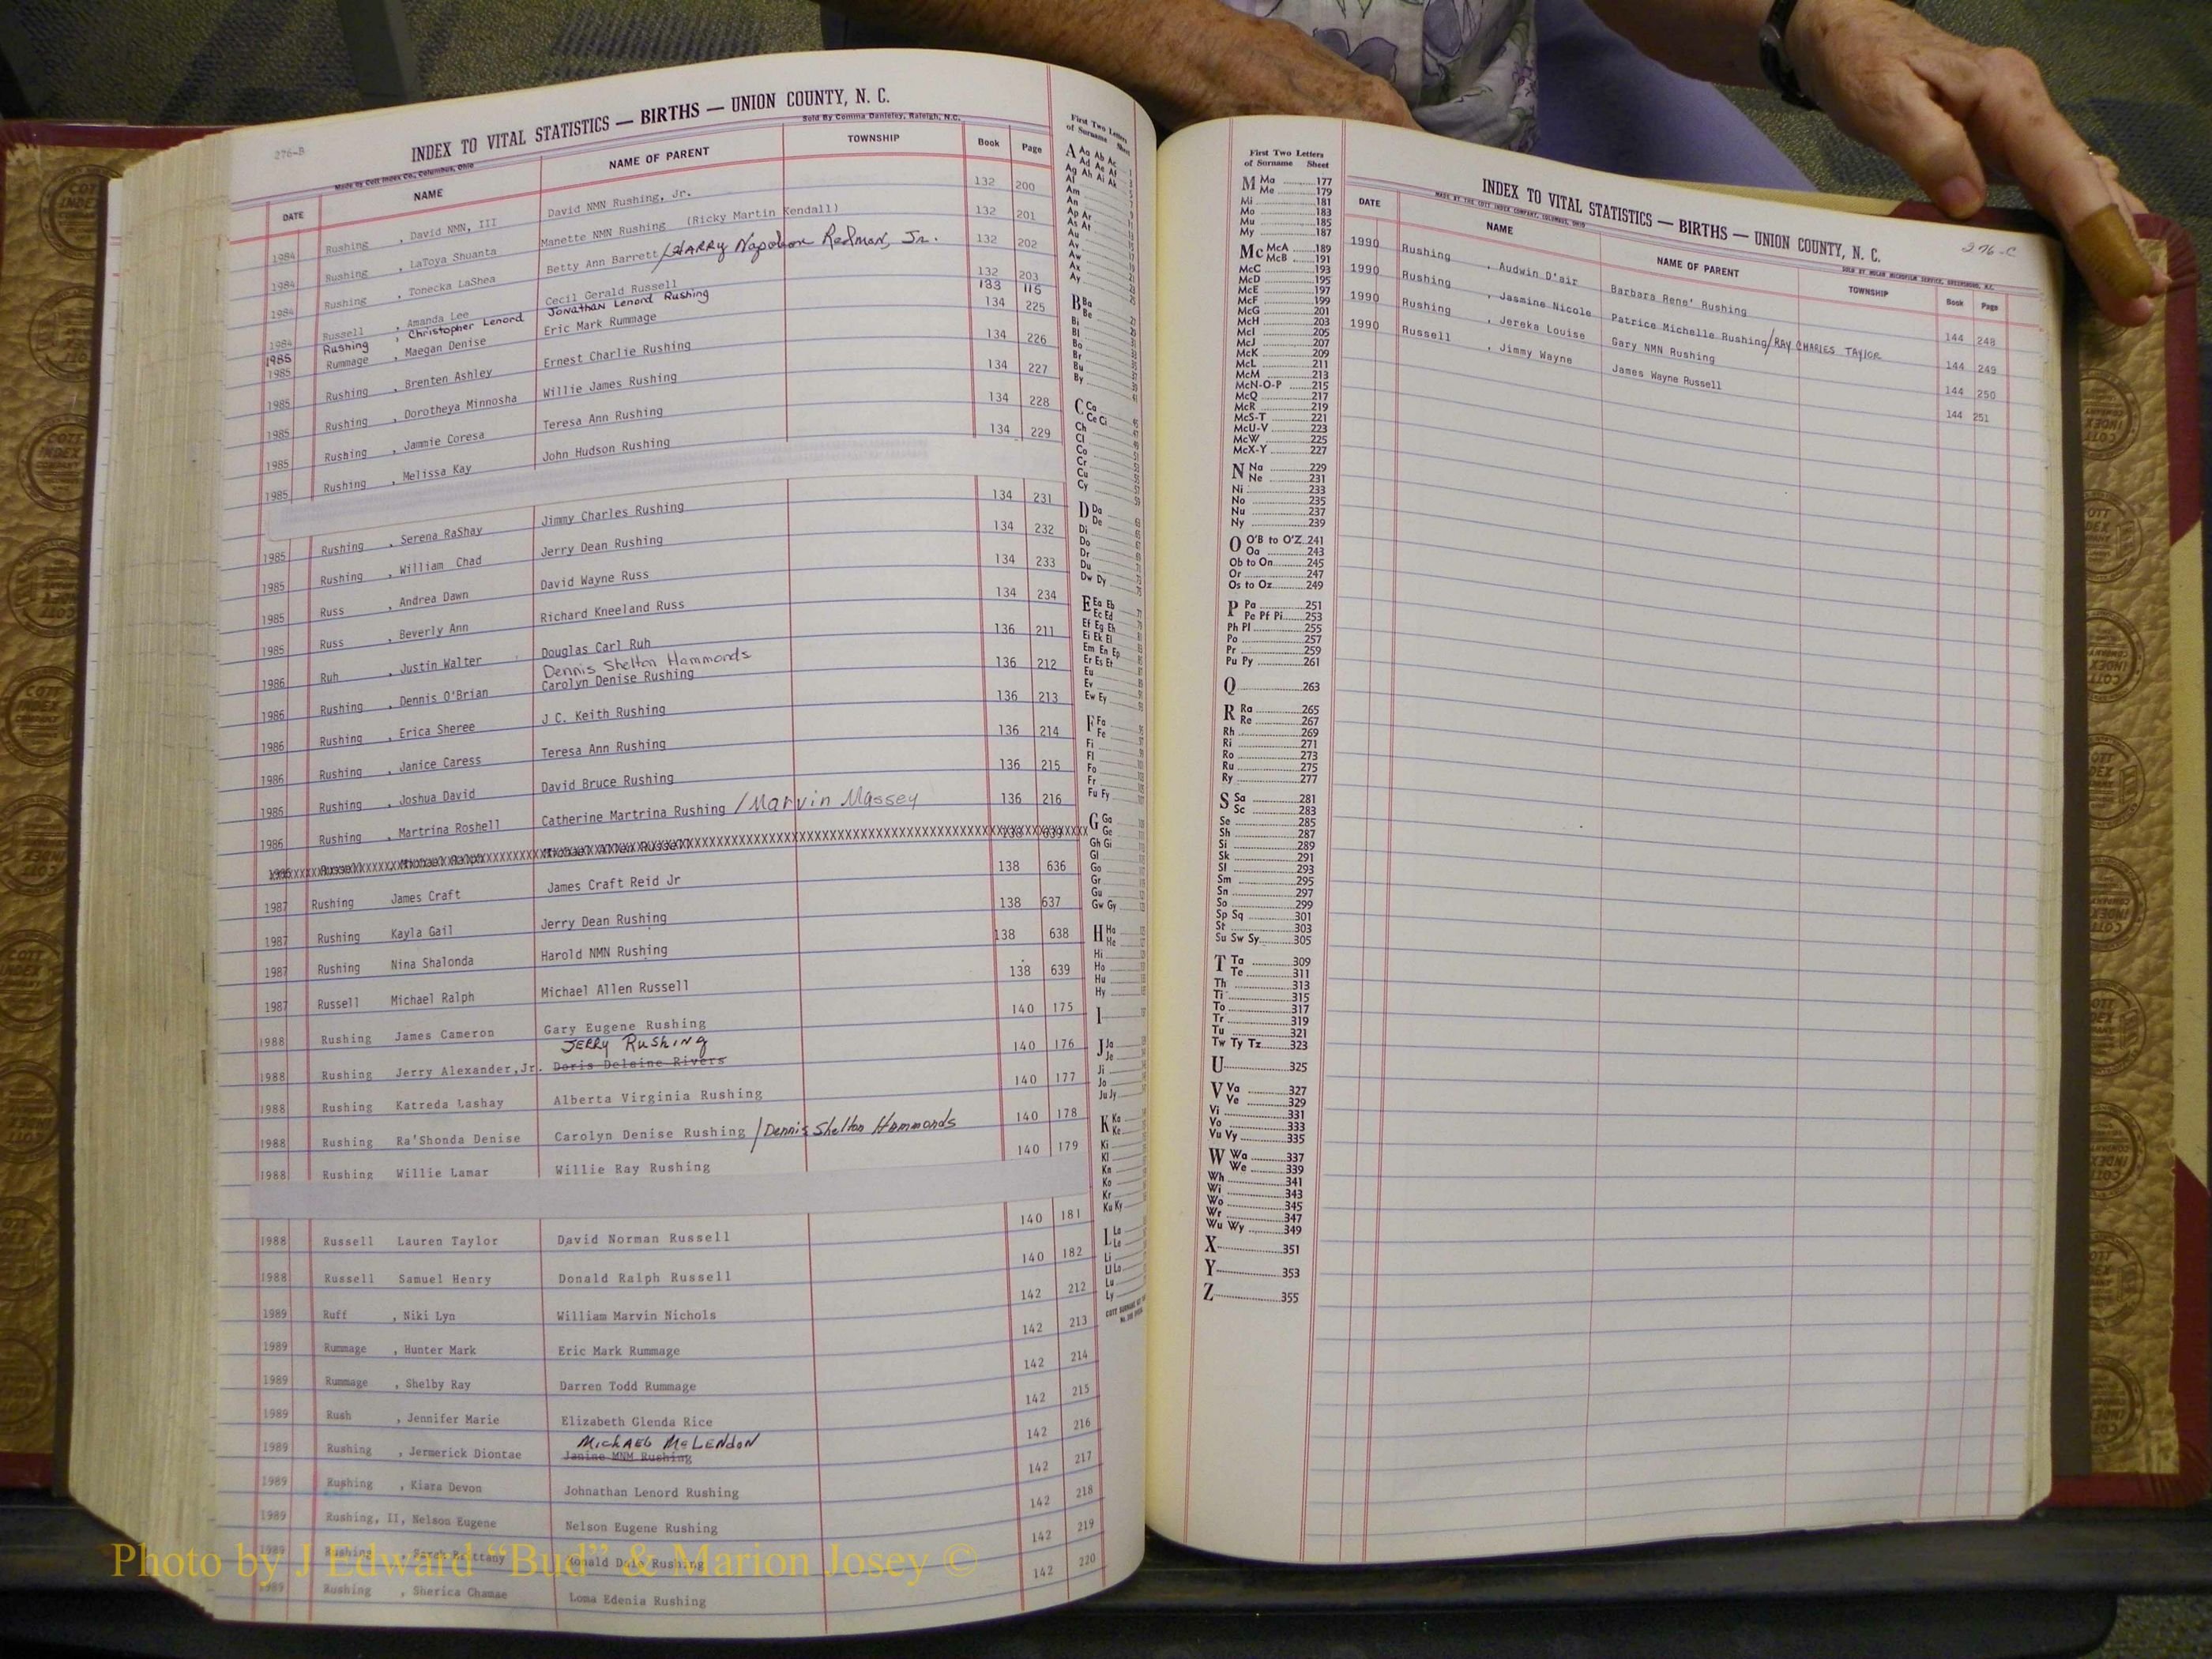 276-B
INDEX TO VITAL STATISTICS — BIRTHS — UNION COUNTY, N. C.
Made by Cott Index Co., Columbus, Ohio
Sold By Comma Danieley, Raleigh, N.C.
DATE NAME NAME OF PARENT TOWNSHIP Book Page
1984 Rushing , David NMN, III David NMN Rushing, Jr. 132 200
1984 Rushing , LaToya Shuanta Manette NMN Rushing (Ricky Martin Kendall) 132 201
1984 Rushing , Tonecka LaShea Betty Ann Barrett /HARRY Napoleon Redman, Jr. 132 202
1984 Russell , Amanda Lee Cecil Gerald Russell 132 203
1985 Rushing , Christopher Lenord Jonathan Lenord Rushing 133 115
1985 Rummage , Maegan Denise Eric Mark Rummage 134 225
1985 Rushing , Brenten Ashley Ernest Charlie Rushing 134 226
1985 Rushing , Dorotheya Minnosha Willie James Rushing 134 227
1985 Rushing , Jammie Coresa Teresa Ann Rushing 134 228
1985 Rushing , Melissa Kay John Hudson Rushing 134 229
1985 Rushing , Serena RaShay Jimmy Charles Rushing 134 231
1985 Rushing , William Chad Jerry Dean Rushing 134 232
1985 Russ , Andrea Dawn David Wayne Russ 134 233
1985 Russ , Beverly Ann Richard Kneeland Russ 134 234
1986 Ruh , Justin Walter Douglas Carl Ruh 136 211
Dennis Shelton Hammonds
1986 Rushing , Dennis O'Brian Carolyn Denise Rushing 136 212
1986 Rushing , Erica Sheree J C. Keith Rushing 136 213
1986 Rushing , Janice Caress Teresa Ann Rushing 136 214
1986 Rushing , Joshua David David Bruce Rushing 136 215
1986 Rushing , Martrina Roshell Catherine Martrina Rushing /Marvin Massey 136 216
Russell Michael Ralph Michael Allen Russell 138 639
1987 Rushing James Craft James Craft Reid Jr 138 636
1987 Rushing Kayla Gail Jerry Dean Rushing 138 637
1987 Rushing Nina Shalonda Harold NMN Rushing 138 638
1987 Russell Michael Ralph Michael Allen Russell 138 639
1988 Rushing James Cameron Gary Eugene Rushing 140 175
JERRY RUSHING
1988 Rushing Jerry Alexander,Jr. Doris Delaine Rivers 140 176
1988 Rushing Katreda Lashay Alberta Virginia Rushing 140 177
1988 Rushing Ra'Shonda Denise Carolyn Denise Rushing /Dennis Shelton Hammonds 140 178
1988 Rushing Willie Lamar Willie Ray Rushing 140 179
1988 Russell Lauren Taylor David Norman Russell 140 181
1988 Russell Samuel Henry Donald Ralph Russell 140 182
1989 Ruff , Niki Lyn William Marvin Nichols 142 212
1989 Rummage , Hunter Mark Eric Mark Rummage 142 213
1989 Rummage , Shelby Ray Darren Todd Rummage 142 214
1989 Rush , Jennifer Marie Elizabeth Glenda Rice 142 215
MICHAEL McLENDON
1989 Rushing , Jermerick Diontae Janine MNM Rushing 142 216
1989 Rushing , Kiara Devon Johnathan Lenord Rushing 142 217
1989 Rushing, II, Nelson Eugene Nelson Eugene Rushing 142 218
1989 Rushing , Sarah Brittany Ronald Dale Rushing 142 219
1989 Rushing , Sherica Chamae Loma Edenia Rushing 142 220
First Two Letters
of Surname Sheet
A Aa Ab Ac
Ad Ae Af
Ag Ah Ai Ak
Al
Am
An
Ap Ar
As At
Au
Av
Aw
Ax
Ay
B Ba
Be
Bi
Bl
Bo
Br
Bu
By
C Ca
Ce Ci
Ch
Cl
Co
Cr
Cu
Cy
D Da
De
Di
Do
Dr
Du
Dw Dy
E Ea Eb
Ec Ed
Ef Eg Eh
Ei Ek El
Em En Ep
Er Es Et
Eu
Ev
Ew Ey
F Fa
Fe
Fi
Fl
Fo
Fr
Fu Fy
G Ga
Ge
Gh Gi
Gl
Go
Gr
Gu
Gw Gy
H Ha
He
Hi
Ho
Hu
Hy
I
J Ja
Je
Ji
Jo
Ju Jy
K Ka
Ke
Ki
Kl
Kn
Ko
Kr
Ku Ky
L La
Le
Li
Ll Lo
Lu
Ly
First Two Letters
of Surname Sheet
M Ma 177
Me 179
Mi 181
Mo 183
Mu 185
My 187
Mc McA 189
McB 191
McC 193
McD 195
McE 197
McF 199
McG 201
McH 203
McI 205
McJ 207
McK 209
McL 211
McM 213
McN-O-P 215
McQ 217
McR 219
McS-T 221
McU-V 223
McW 225
McX-Y 227
N Na 229
Ne 231
Ni 233
No 235
Nu 237
Ny 239
O O'B to O'Z 241
Oa 243
Ob to On 245
Or 247
Os to Oz 249
P Pa 251
Pe Pf Pi 253
Ph Pl 255
Po 257
Pr 259
Pu Py 261
Q 263
R Ra 265
Re 267
Rh 269
Ri 271
Ro 273
Ru 275
Ry 277
S Sa 281
Sc 283
Se 285
Sh 287
Si 289
Sk 291
Sl 293
Sm 295
Sn 297
So 299
Sp Sq 301
St 303
Su Sw Sy 305
T Ta 309
Te 311
Th 313
Ti 315
To 317
Tr 319
Tu 321
Tw Ty Tz 323
U 325
V Va 327
Ve 329
Vi 331
Vo 333
Vu Vy 335
W Wa 337
We 339
Wh 341
Wi 343
Wo 345
Wr 347
Wu Wy 349
X 351
Y 353
Z 355
276-C
INDEX TO VITAL STATISTICS — BIRTHS — UNION COUNTY, N. C.
MADE BY THE COTT INDEX COMPANY, COLUMBUS, OHIO
SOLD BY MICROFILM SERVICE, GREENSBORO, N.C.
DATE NAME NAME OF PARENT TOWNSHIP Book Page
1990 Rushing , Audwin D'sir Barbara Rene' Rushing 144 248
1990 Rushing , Jasmine Nicole Patrice Michelle Rushing/RAY CHARLES TAYLOR 144 249
1990 Rushing , Jereka Louise Gary NMN Rushing 144 250
1990 Russell , Jimmy Wayne James Wayne Russell 144 251
Photo by J Edward "Bud" & Marion Josey ©